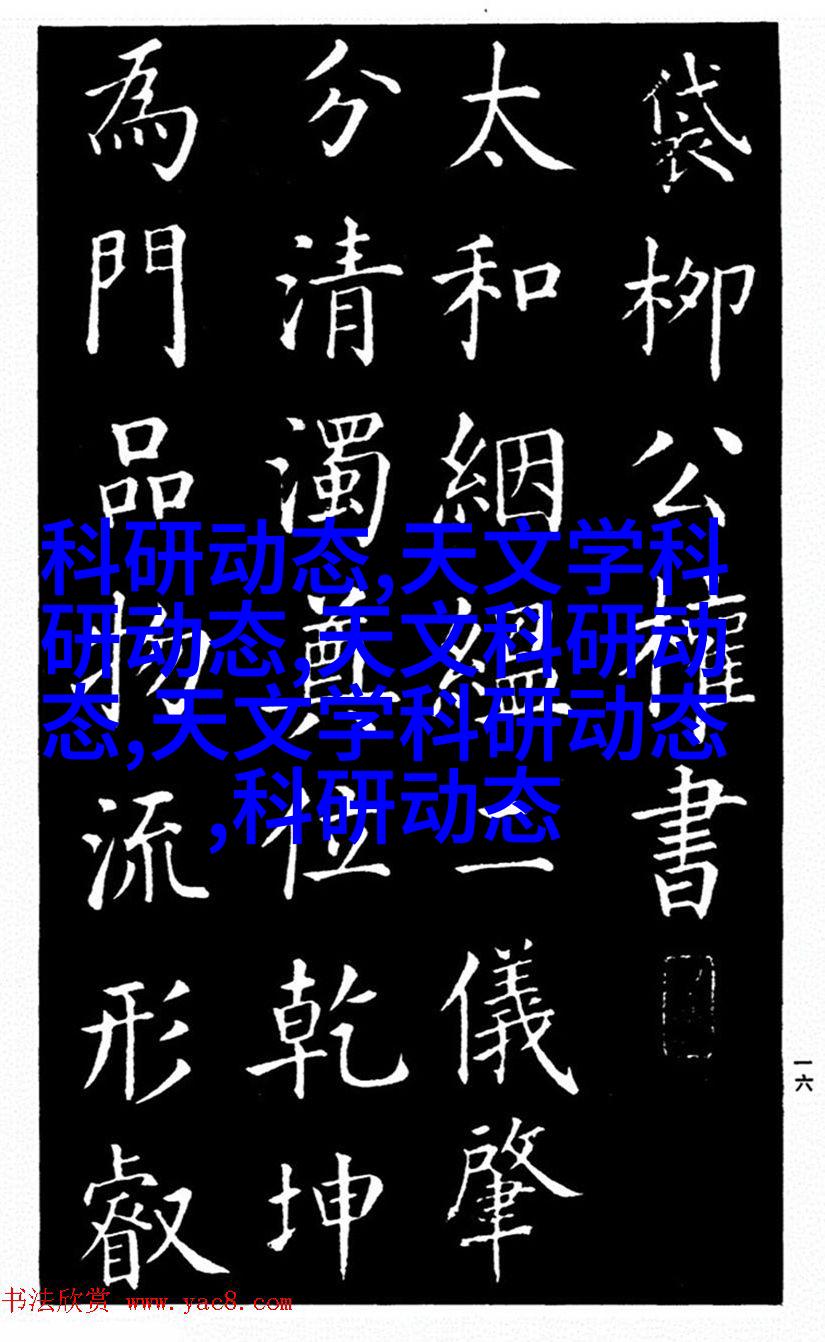 袋柳公權書
太和絪縕二儀肇
分清濁尊位乾坤
為門品物流形叡
科研动态,天文学科
研动态,天文科研动
态,天文学科研动态
,科研动态
一六
书法欣赏 www.yac8.com